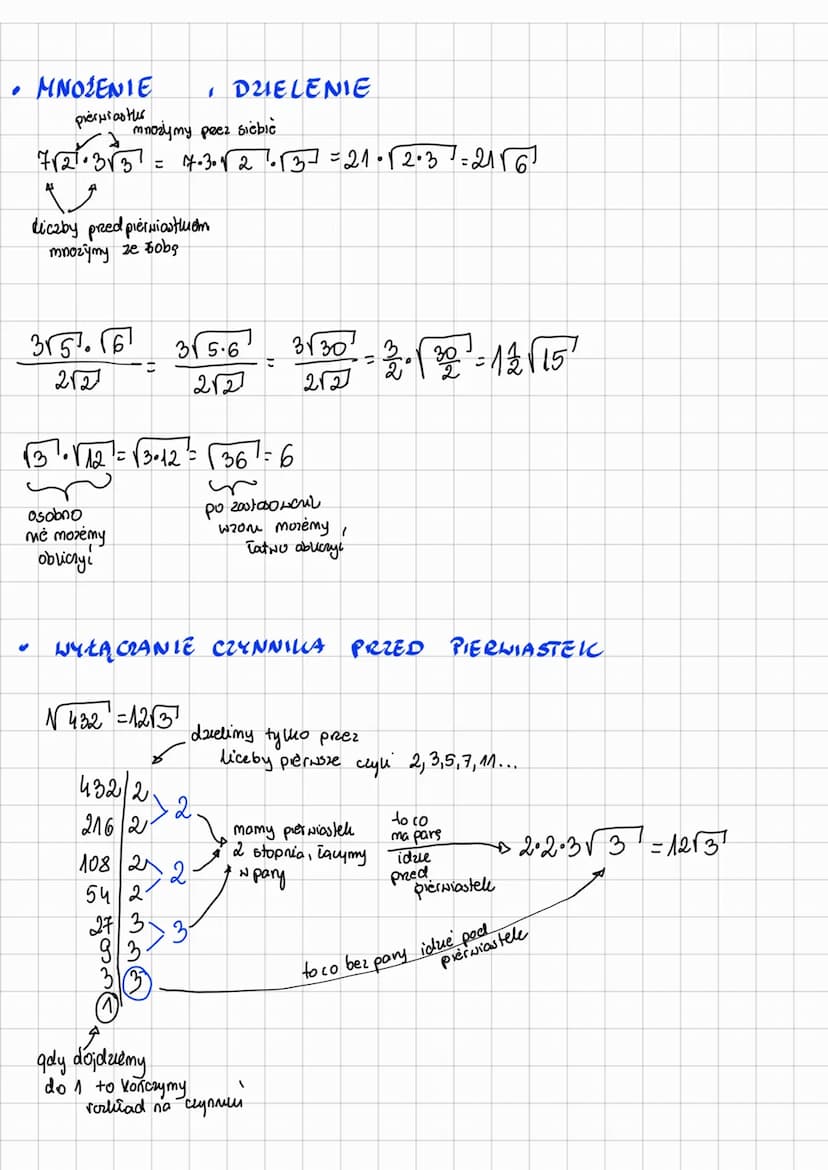 • MNOŻENIE I DZIELENIE
pierwiastki
mnożymy przez siebie
7√2 · 3√3 = 7·3·√2 · √3 = 21 · √2·3 = 21√6
liczby przed pierwiastkiem
mnożymy ze sobą
3√5 · √6 / 2√2 = 3√5·6 / 2√2 = 3√30 / 2√2 = 3/2 · √30/2 = 1 1/2 √15
√3 · √12 = √3·12 = √36 = 6
osobno
nie możemy
obliczyć
po zastosowaniu
wzoru możemy
łatwo obliczyć
• WYŁĄCZANIE CZYNNIKA PRZED PIERWIASTEK
√432 = 12√3
dzielimy tylko przez
liczby pierwsze czyli 2, 3, 5, 7, 11...
432 | 2
216 | 2
2
108 | 2
54 | 2
2
27 | 3
9 | 3
3
3 | 3
1
mamy pierwiastek
2 stopnia, łączymy
w pary
to co
ma parę
idzie
przed
pierwiastek
2·2·3√3 = 12√3
to co bez pary idzie pod
pierwiastek
gdy dojdziemy
do 1 to kończymy
rozkład na czynniki